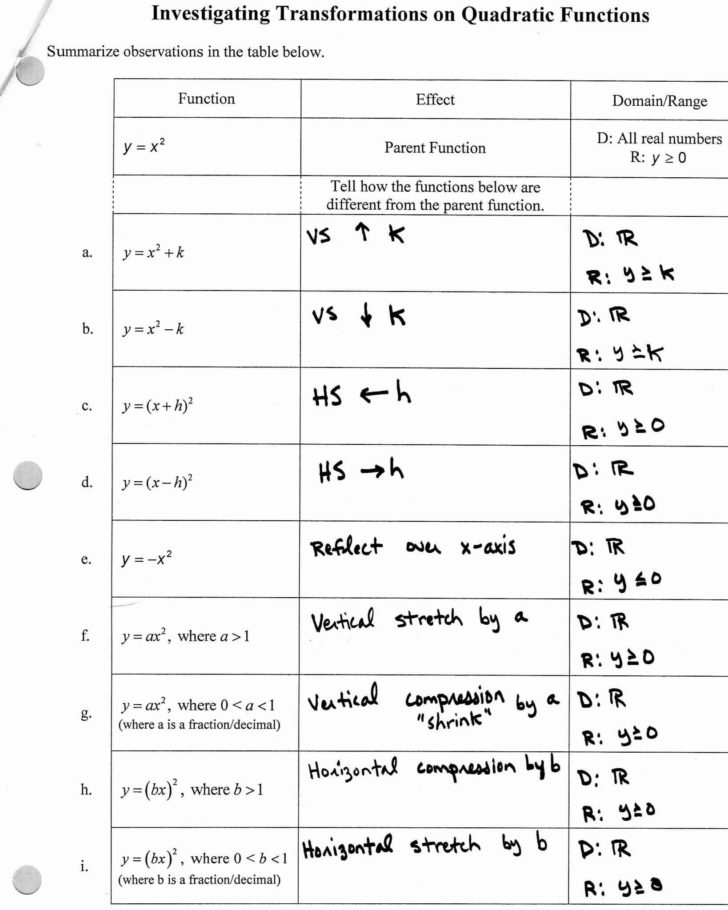 Investigating Transformations on Quadratic Functions
Summarize observations in the table below.
Function Effect Domain/Range
y = x² Parent Function D: All real numbers
R: y ≥ 0
Tell how the functions below are
different from the parent function.
a. y = x² + k VS ↑ k D: ℝ
R: y ≥ k
b. y = x² – k VS ↓ k D: ℝ
R: y ≥ k
c. y = (x + h)² HS ← h D: ℝ
R: y ≥ 0
d. y = (x – h)² HS → h D: ℝ
R: y ≥ 0
e. y = –x² Reflect over x-axis D: ℝ
R: y ≤ 0
f. y = ax², where a > 1 Vertical stretch by a D: ℝ
R: y ≥ 0
g. y = ax², where 0 < a < 1 Vertical compression by a D: ℝ
(where a is a fraction/decimal) "shrink" R: y ≥ 0
h. y = (bx)², where b > 1 Horizontal compression by b D: ℝ
R: y ≥ 0
i. y = (bx)², where 0 < b < 1 Horizontal stretch by b D: ℝ
(where b is a fraction/decimal) R: y ≥ 0